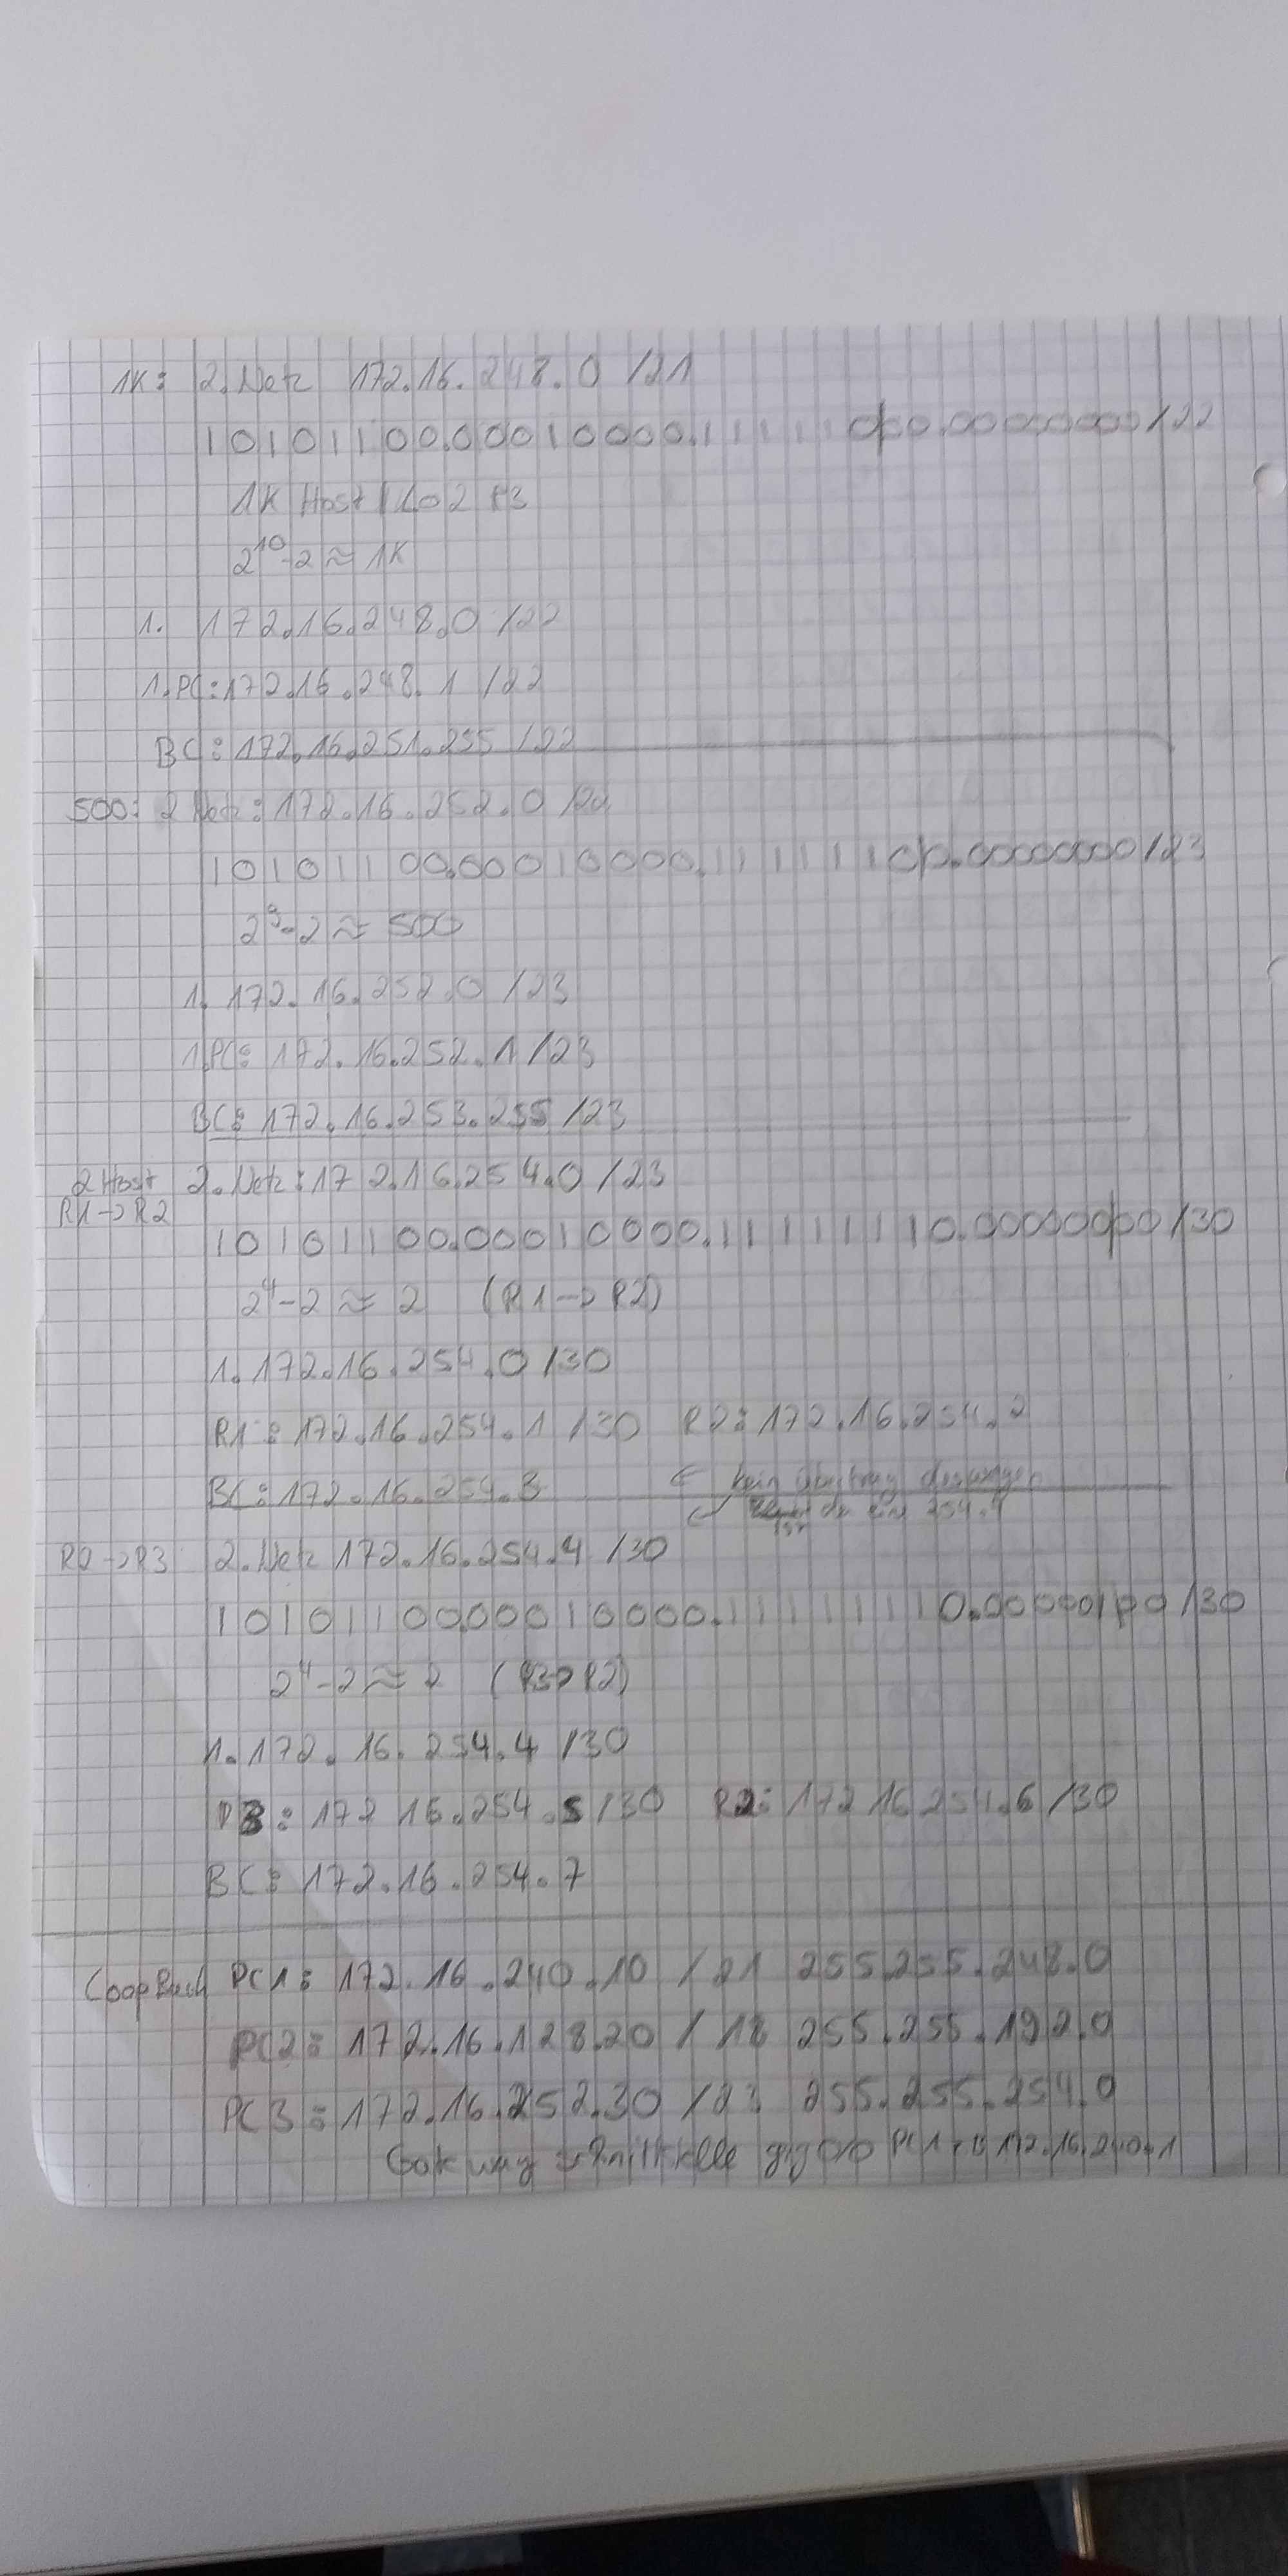 1K: 2. Netz 172.16.248.0 /21
10101100.00010000.11111000.00000000/22
1K Host Lo2 R3
2^10-2 ≈ 1K
1. 172.16.248.0 /22
1.PC: 172.16.248.1 /22
BC: 172.16.251.255 /22
500: 2 Netz: 172.16.252.0 /22
10101100.00010000.11111100.00000000/23
2^9-2 ≈ 500
1. 172.16.252.0 /23
1.PC: 172.16.252.1 /23
BC: 172.16.253.255 /23
2 Host 2. Netz: 172.16.254.0 /23
R1->R2
10101100.00010000.11111110.00000000 /30
2^4-2 ≈ 2 (R1->R2)
1. 172.16.254.0 /30
R1: 172.16.254.1 /30 R2: 172.16.254.2
BC: 172.16.254.3 ← kein Übertrag deswegen
ist da eine 254.4
R2->R3 2. Netz 172.16.254.4 /30
10101100.00010000.11111110.00000100 /30
2^4-2 ≈ 2 (R3->R2)
1. 172.16.254.4 /30
R3: 172 16.254.5 /30 R2: 172 16 254.6 /30
BC: 172.16.254.7
LoopBack PC1: 172.16.240.10 /21 255.255.248.0
PC2: 172.16.128.20 / 18 255.255.192.0
PC3: 172.16.252.30 /23 255.255.254.0
Gateway schnittstelle gig0/0 PC1 172.16.240.1